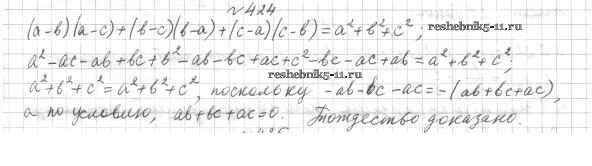 №424
(a-b)(a-c)+(b-c)(b-a)+(c-a)(c-b)=a²+b²+c²;
reshebnik5-11.ru
a²-ac-ab+bc+b²-ab-bc+ac+c²-bc-ac+ab=a²+b²+c²;
reshebnik5-11.ru
a²+b²+c²=a²+b²+c², поскольку -ab-bc-ac=-(ab+bc+ac),
а по условию, ab+bc+ac=0. Тождество доказано.